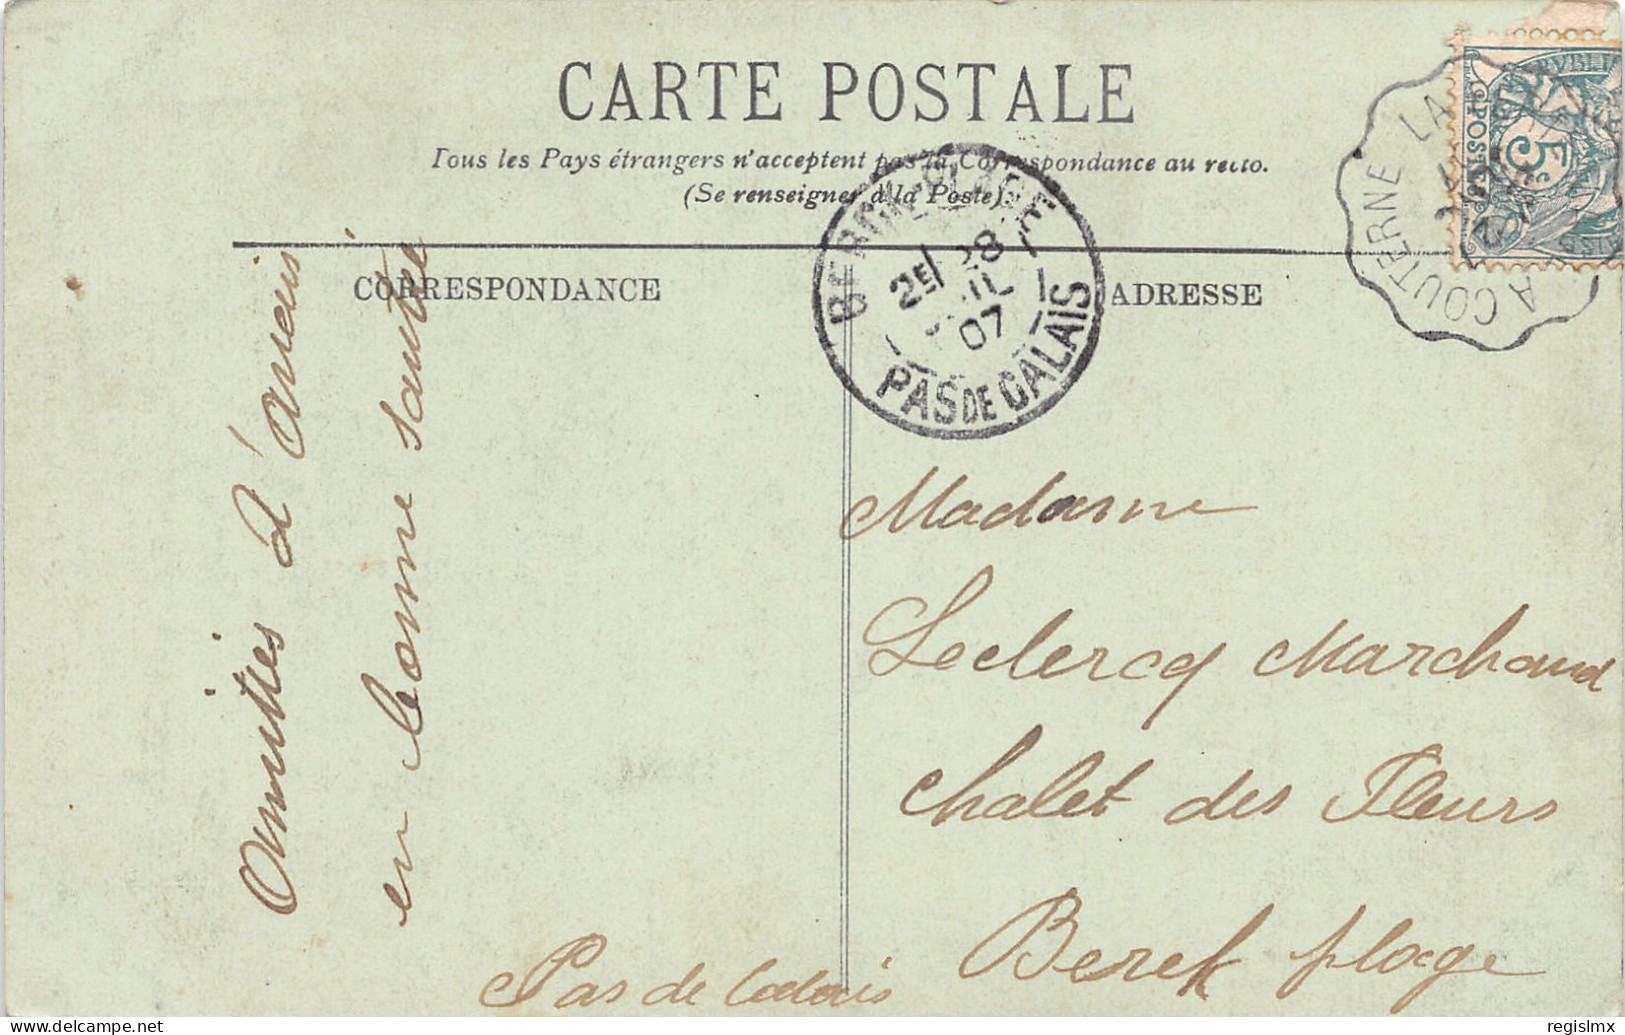 CARTE POSTALE
Tous les Pays étrangers n'acceptent pas la Correspondance au recto.
(Se renseigner à la Poste).
CORRESPONDANCE
ADRESSE
BERCK-PLAGE
2E 28
JUIL
07
PAS DE CALAIS
LA COUTERNE A
POSTES
5c
Amitiés d'
en bonne santée
Madame
Leclercq Marchand
Chalet des Fleurs
Berck plage
Pas de Calais
delcampe.net
regislmx